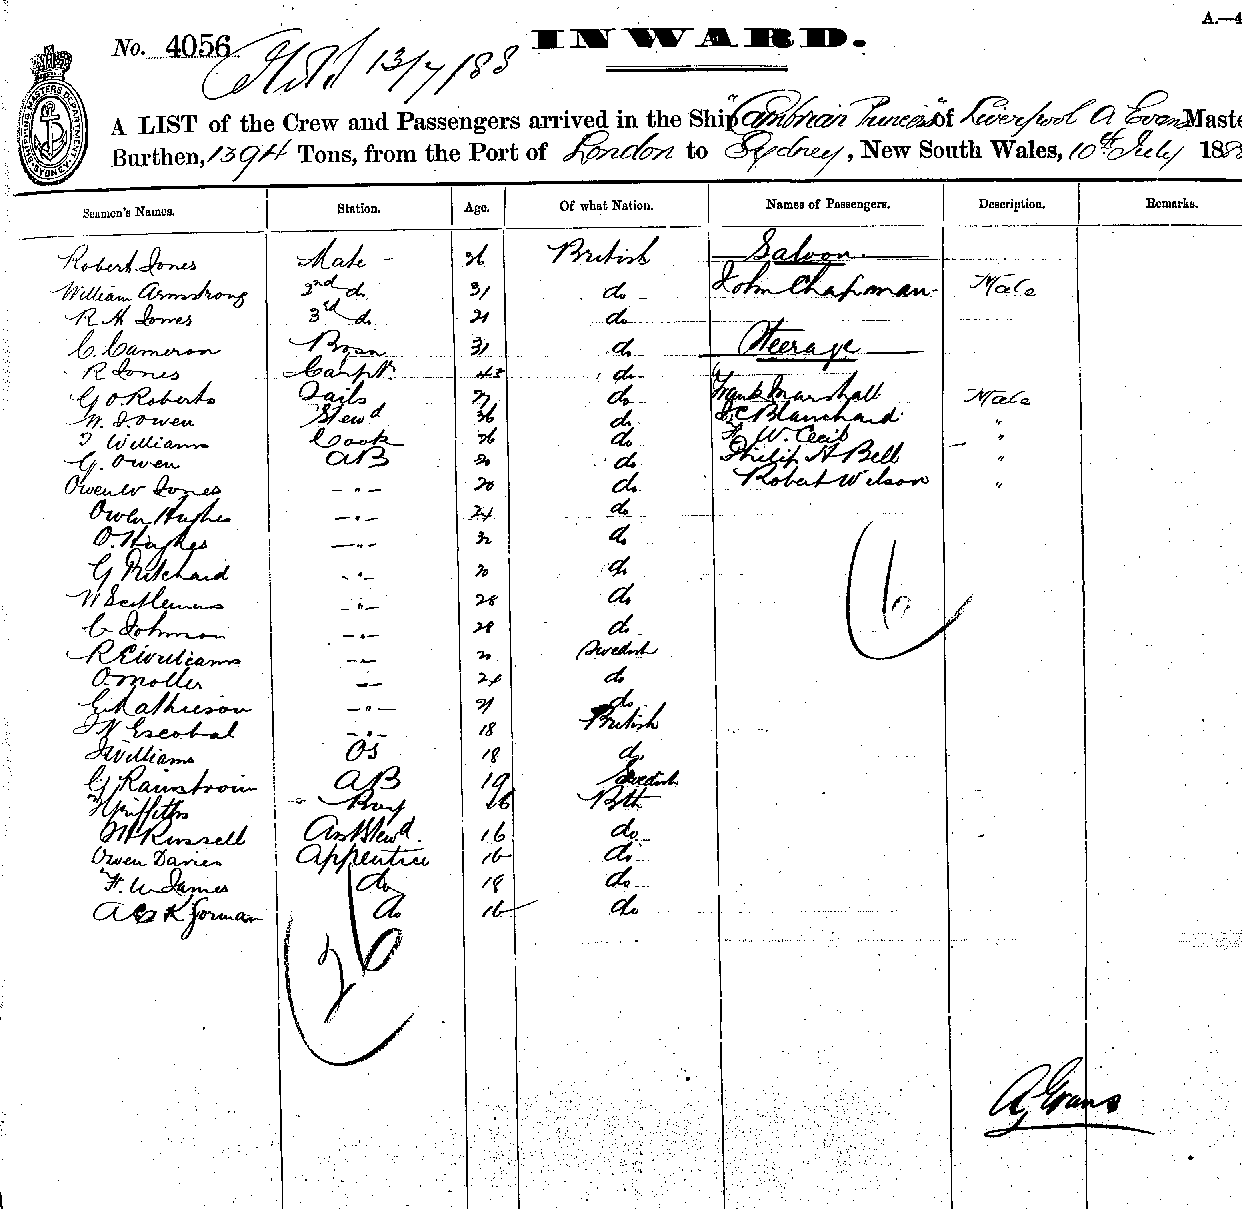 A.—4
No. 4056 INWARD.
13/7/88
A LIST of the Crew and Passengers arrived in the Ship "Cambrian Princess" of Liverpool A Evans Maste
Burthen, 1394 Tons, from the Port of London to Sydney, New South Wales, 10th July 188
SHIPPING MASTERS DEPARTMENT SYDNEY
Seamen's Names. Station. Age. Of what Nation. Names of Passengers. Description. Remarks.
Robert Jones Mate 26 British Saloon
William Armstrong 2nd do 31 do John Chapman Male
R H Jones 3rd do 21 do
C. Cameron Bosn 31 do Steerage
R Jones Carptr 43 do
G O Roberts Sails 27 do Frank Marshall Male
W. J. Owen Stewd 36 do Blanchard "
T Williams Cook 26 do W. Cecil "
G. Owen AB 20 do Philip H Bell "
Owen W Jones " 20 do Robert Wilson "
Owen Hughes " 24 do
O. Hughes " 32 do
G Pritchard " 20 do
" 28 do
C Johnson " 28 do
R E Williams Swedish
O. Moller 24 do
Mathieson " 21 do
Escobal " 18 British
J Williams OS 18 do
G Rainstrom AB 19 Swedish
Griffiths Boy 16 Bth
W Russell Asst Stewd. 16 do
Owen Davies Apprentice 16 do
F. W James do 18 do
Gorman do 16 do
6
26
A Evans